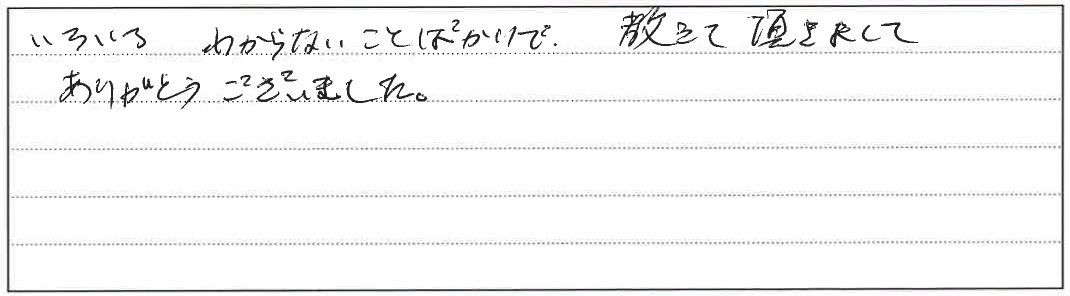 いろいろ わからない ことばかりで. 教えて 頂きまして
ありがとう ございました。